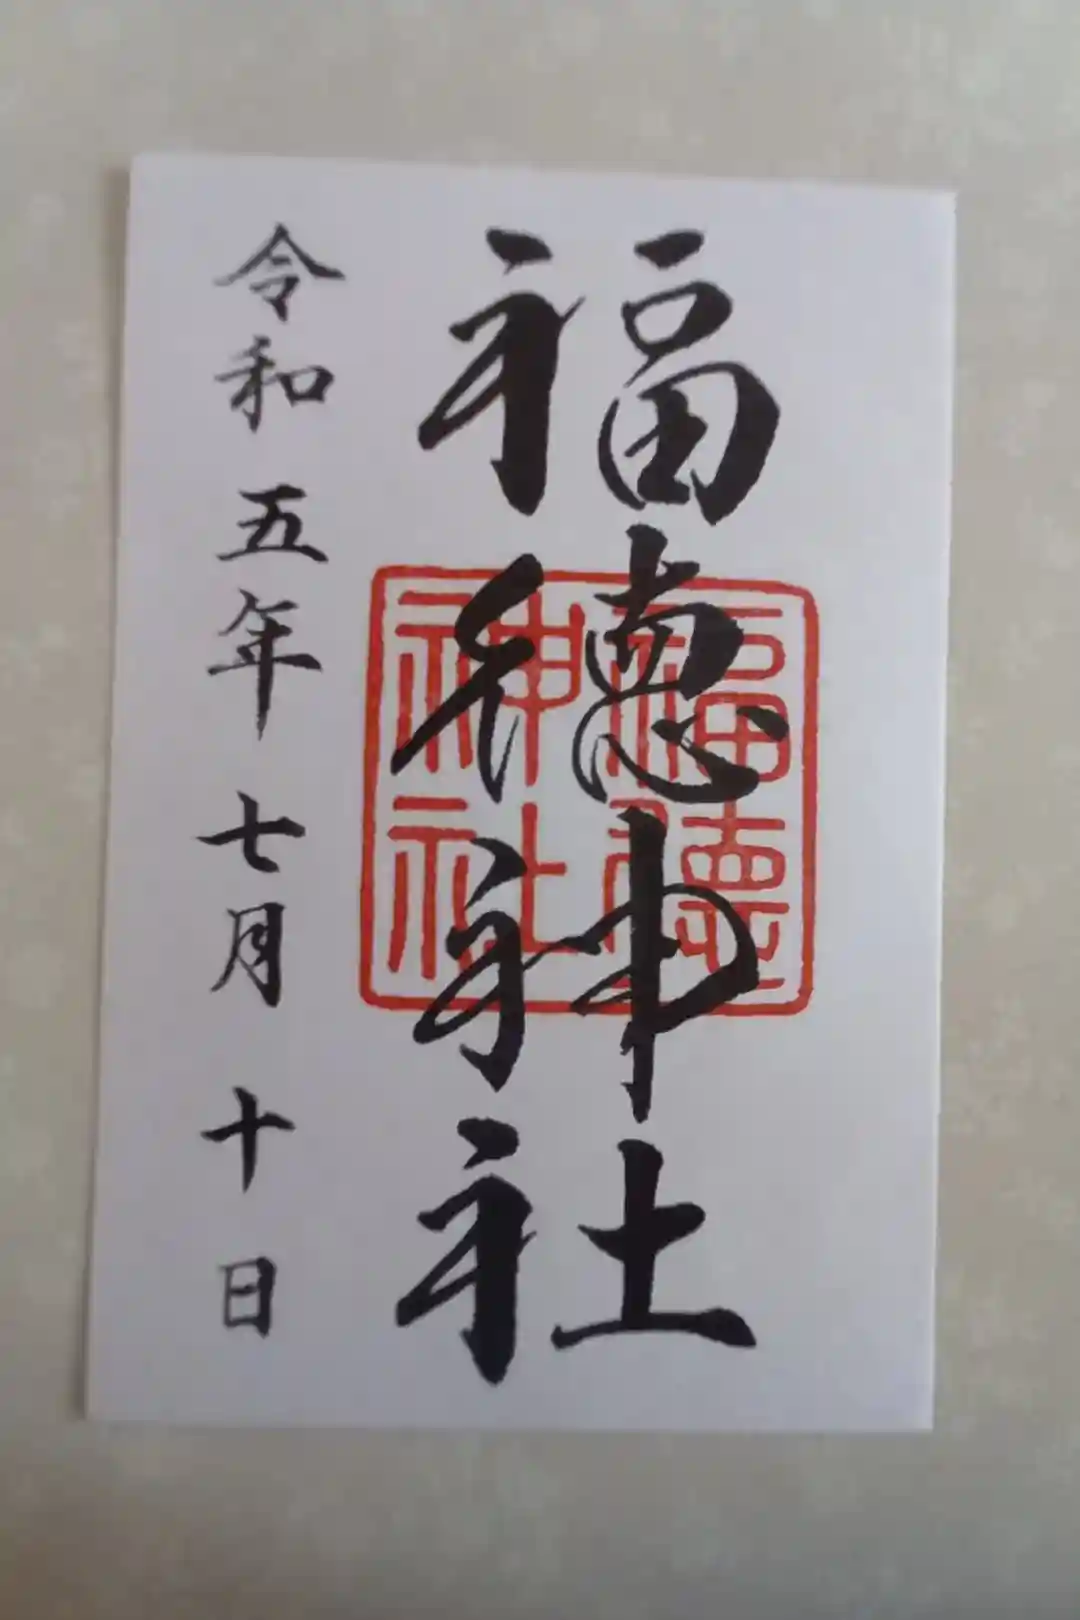 福徳神社
福徳神社
令和五年七月十日